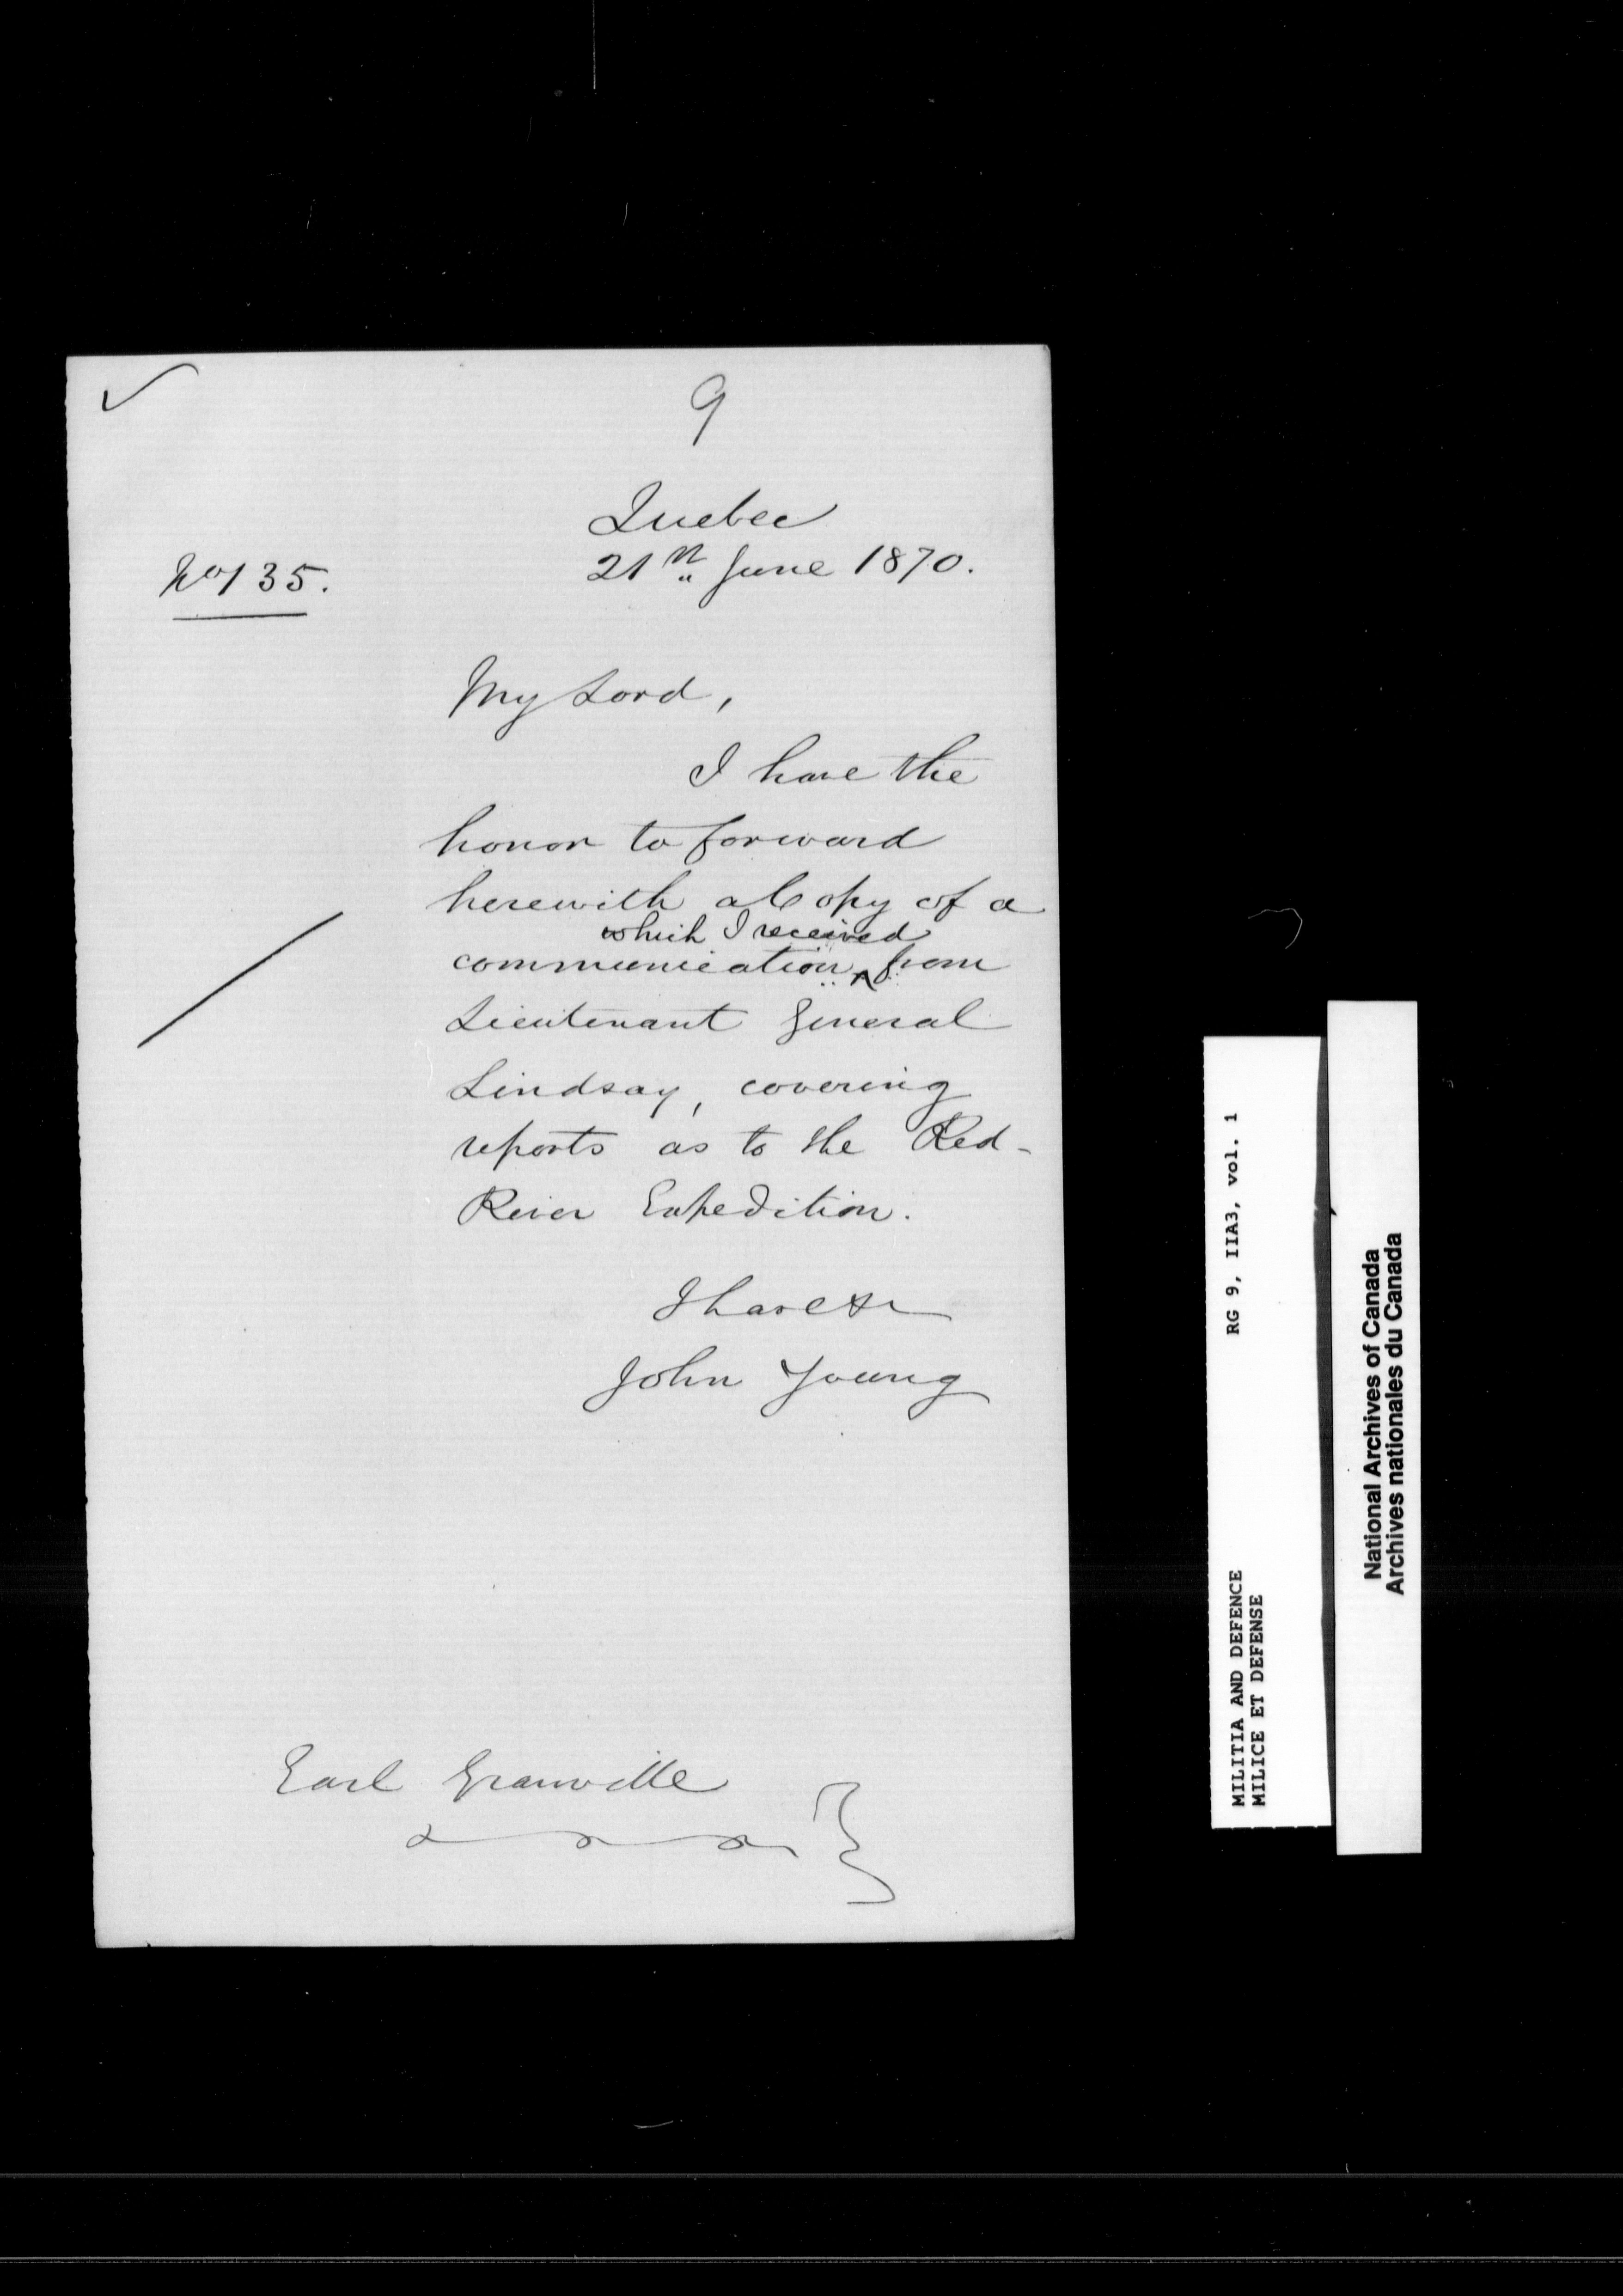 9
Quebec
No 135.
21st June 1870.
My Lord,
I have the
honor to forward
herewith a Copy of a
which I received
communication ^ from
Lieutenant General
Lindsay, covering
reports as to the Red-
River Expedition.
I have &c
John Young
Earl Granville
RG 9, IIA3, vol. 1
MILITIA AND DEFENCE
MILICE ET DEFENSE
National Archives of Canada
Archives nationales du Canada